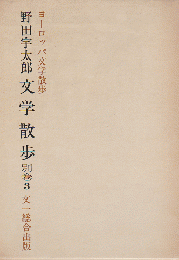 ヨーロッパ文学散歩
野田宇太郎文学散歩別巻3文一総合出版